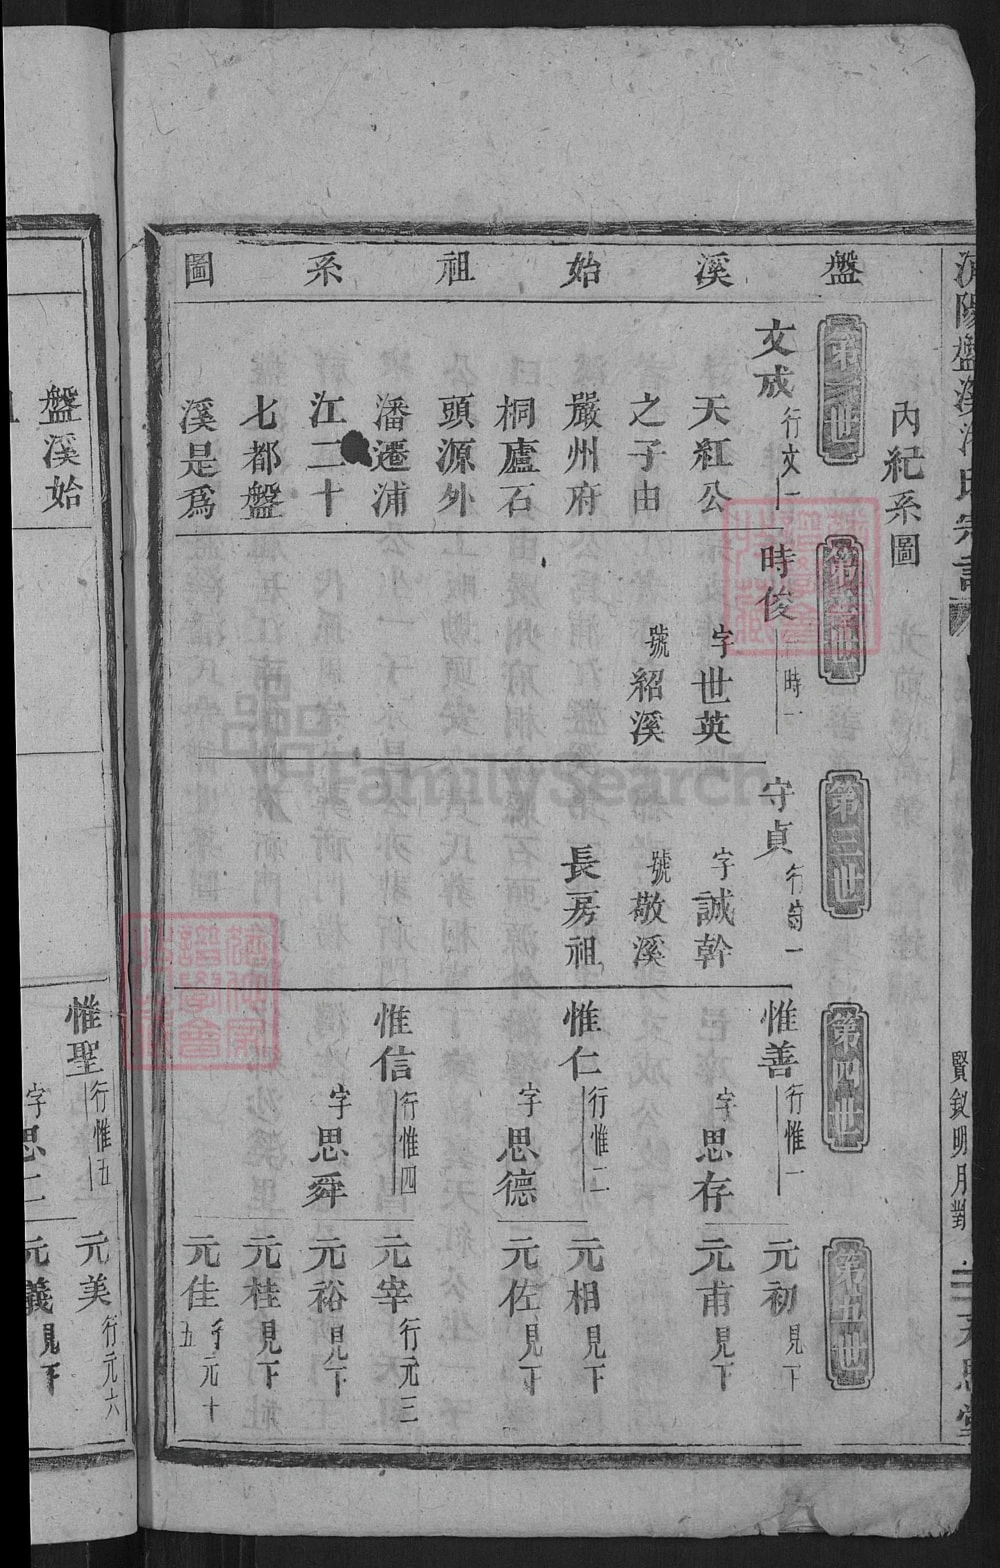 盤溪始祖系圖
內紀系圖
第一世
文成 行文一
天紅公
之子由
嚴州府
桐廬石
頭源外
潘遷浦
江二十
七都盤
溪是爲
時俊 時一
字世英
號紹溪
第三世
守貞
字誠幹
號敬溪
長房祖
第四世
惟善 行惟一
字思存
惟仁 行惟二
字思德
惟信 行惟四
字思舜
第五世
元初 見下
元甫 見下
元相 見下
元佐 見下
元宰 行元三
元裕 見下
元桂 見下
元佳 行元十五
賢欽明月對
盤溪始
惟聖 行惟五
元美 行元六
元義 見下
FamilySearch